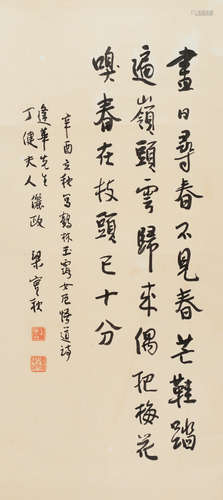 盡日尋春不見春芒鞋踏
遍嶺頭雲歸來偶把梅花
嗅春在枝頭已十分
辛酉立秋寫鶴林玉露女尼悟道詩
逢華先生
丁健夫人儷政 梁實秋